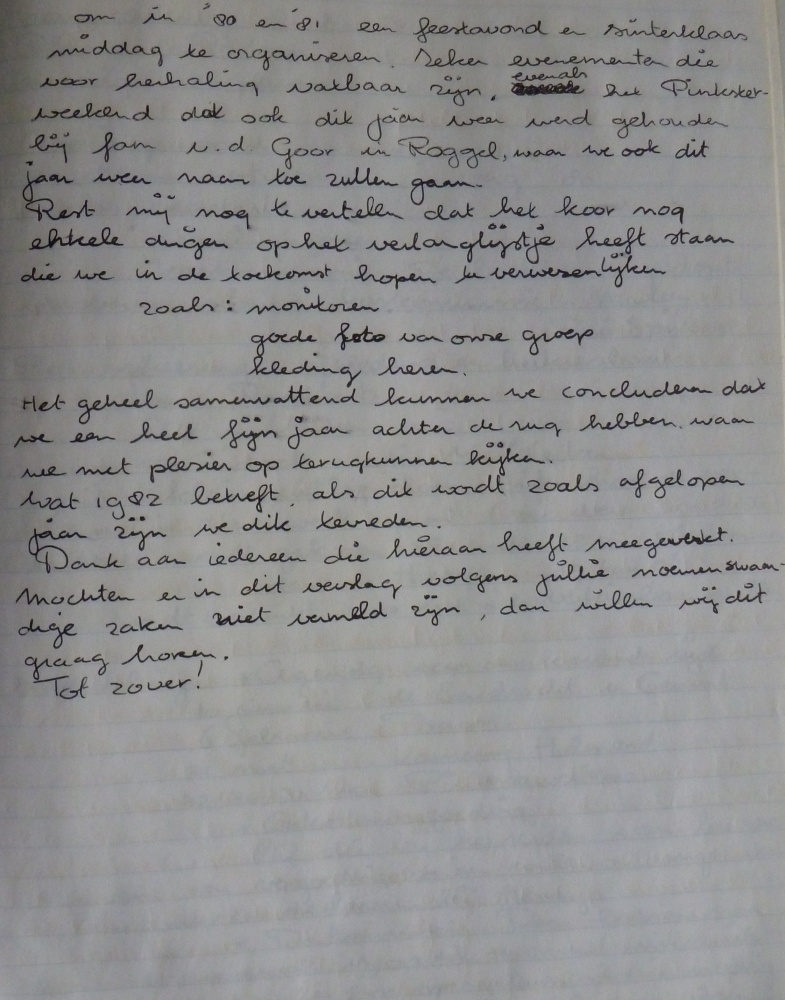 om in '80 en '81 een feestavond en sinterklaas
middag te organiseren. Zeker evenementen die
voor herhaling vatbaar zijn, evenals het Pinkster-
weekend dat ook dit jaar weer werd gehouden
bij fam v.d. Goor in Roggel, waar we ook dit
jaar weer naar toe zullen gaan.
Rest mij nog te vertellen dat het koor nog
enkele dingen op het verlanglijstje heeft staan
die we in de toekomst hopen te verwezenlijken
zoals: monitoren
goede foto van onze groep
kleding heren.
Het geheel samenvattend kunnen we concluderen dat
we een heel fijn jaar achter de rug hebben. waar
we met plesier op terugkunnen kijken.
Wat 1982 betreft, als dit wordt zoals afgelopen
jaar zijn we dik tevreden.
Dank aan iedereen die hieraan heeft meegewerkt.
Mochten er in dit verslag volgens jullie noemenswaar-
dige zaken niet vermeld zijn, dan willen wij dit
graag horen.
Tot zover!